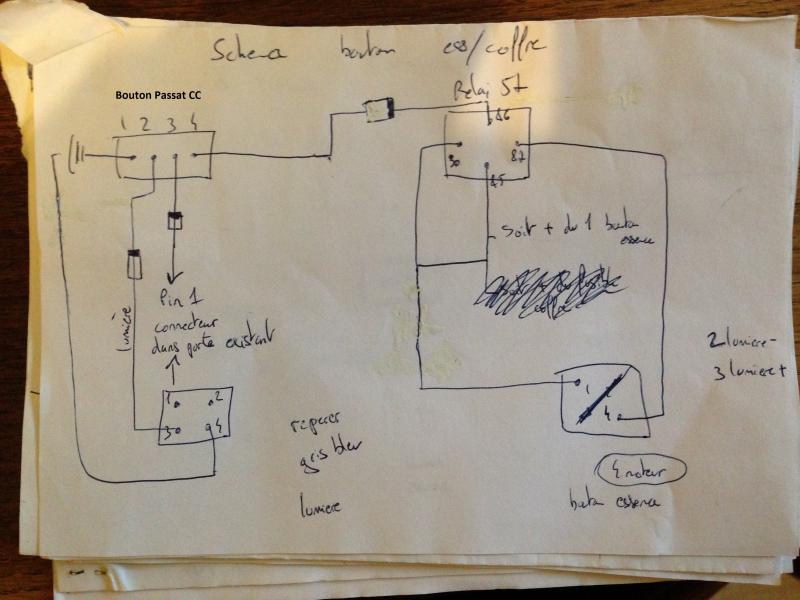 Schema bouton ess/coffre
Bouton Passat CC
Relai 51
1 2 3 4
86
30
87
85
soit + du 1 bouton
essence
Pin 1
connecteur
dans porte existant
lumière
1 2
3 4
reperer
gris bleu
lumiere
1
4
2 lumiere -
3 lumiere +
4 moteur
bouton essence